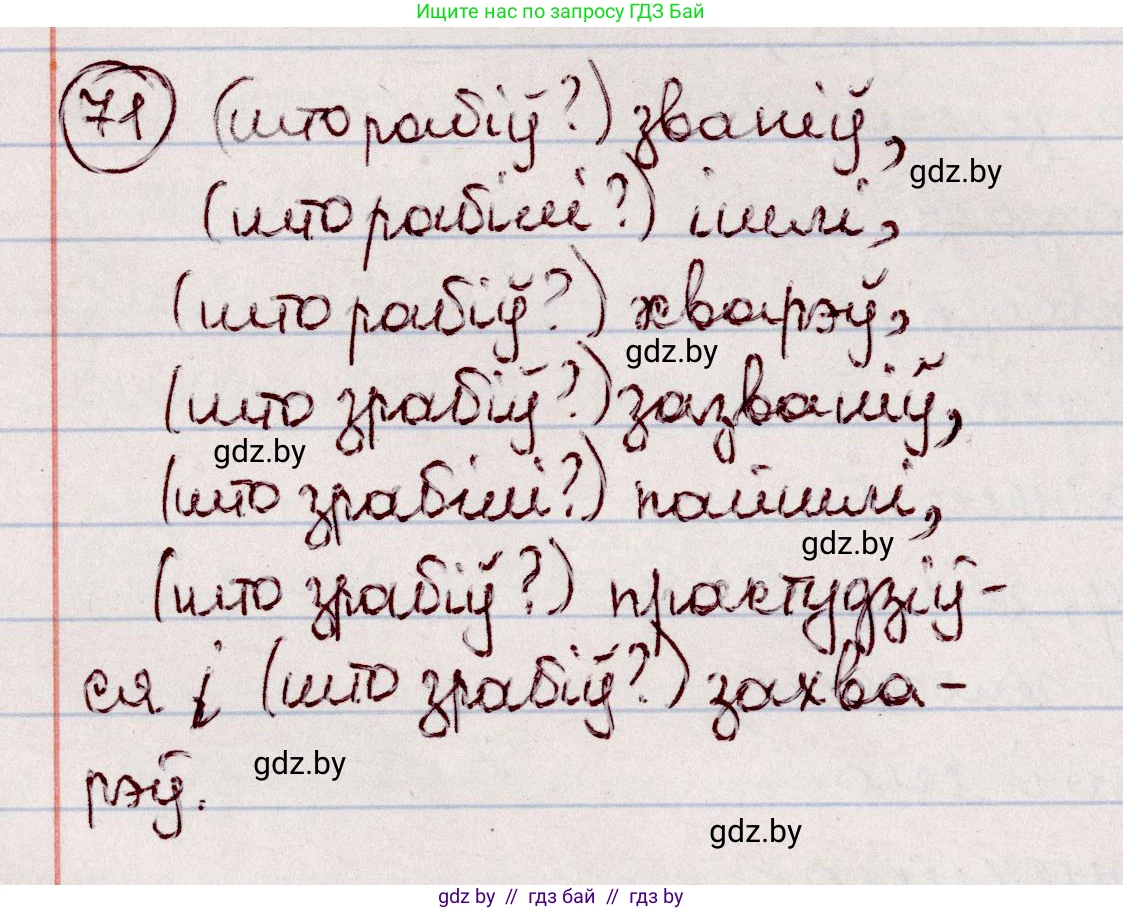 Ищите нас по запросу ГДЗ Бай
71 (што рабіў?) званіў,
gdz.by
(што рабілі?) ішлі,
(што рабіў?) хварэў,
gdz.by
(што зрабіў?) зазваніў,
gdz.by
(што зрабілі?) пайшлі,
gdz.by
(што зрабіў?) прастудзіў-
ся і (што зрабіў?) захва-
gdz.by
рэў.
gdz.by
gdz by // гдз бай // гдз by